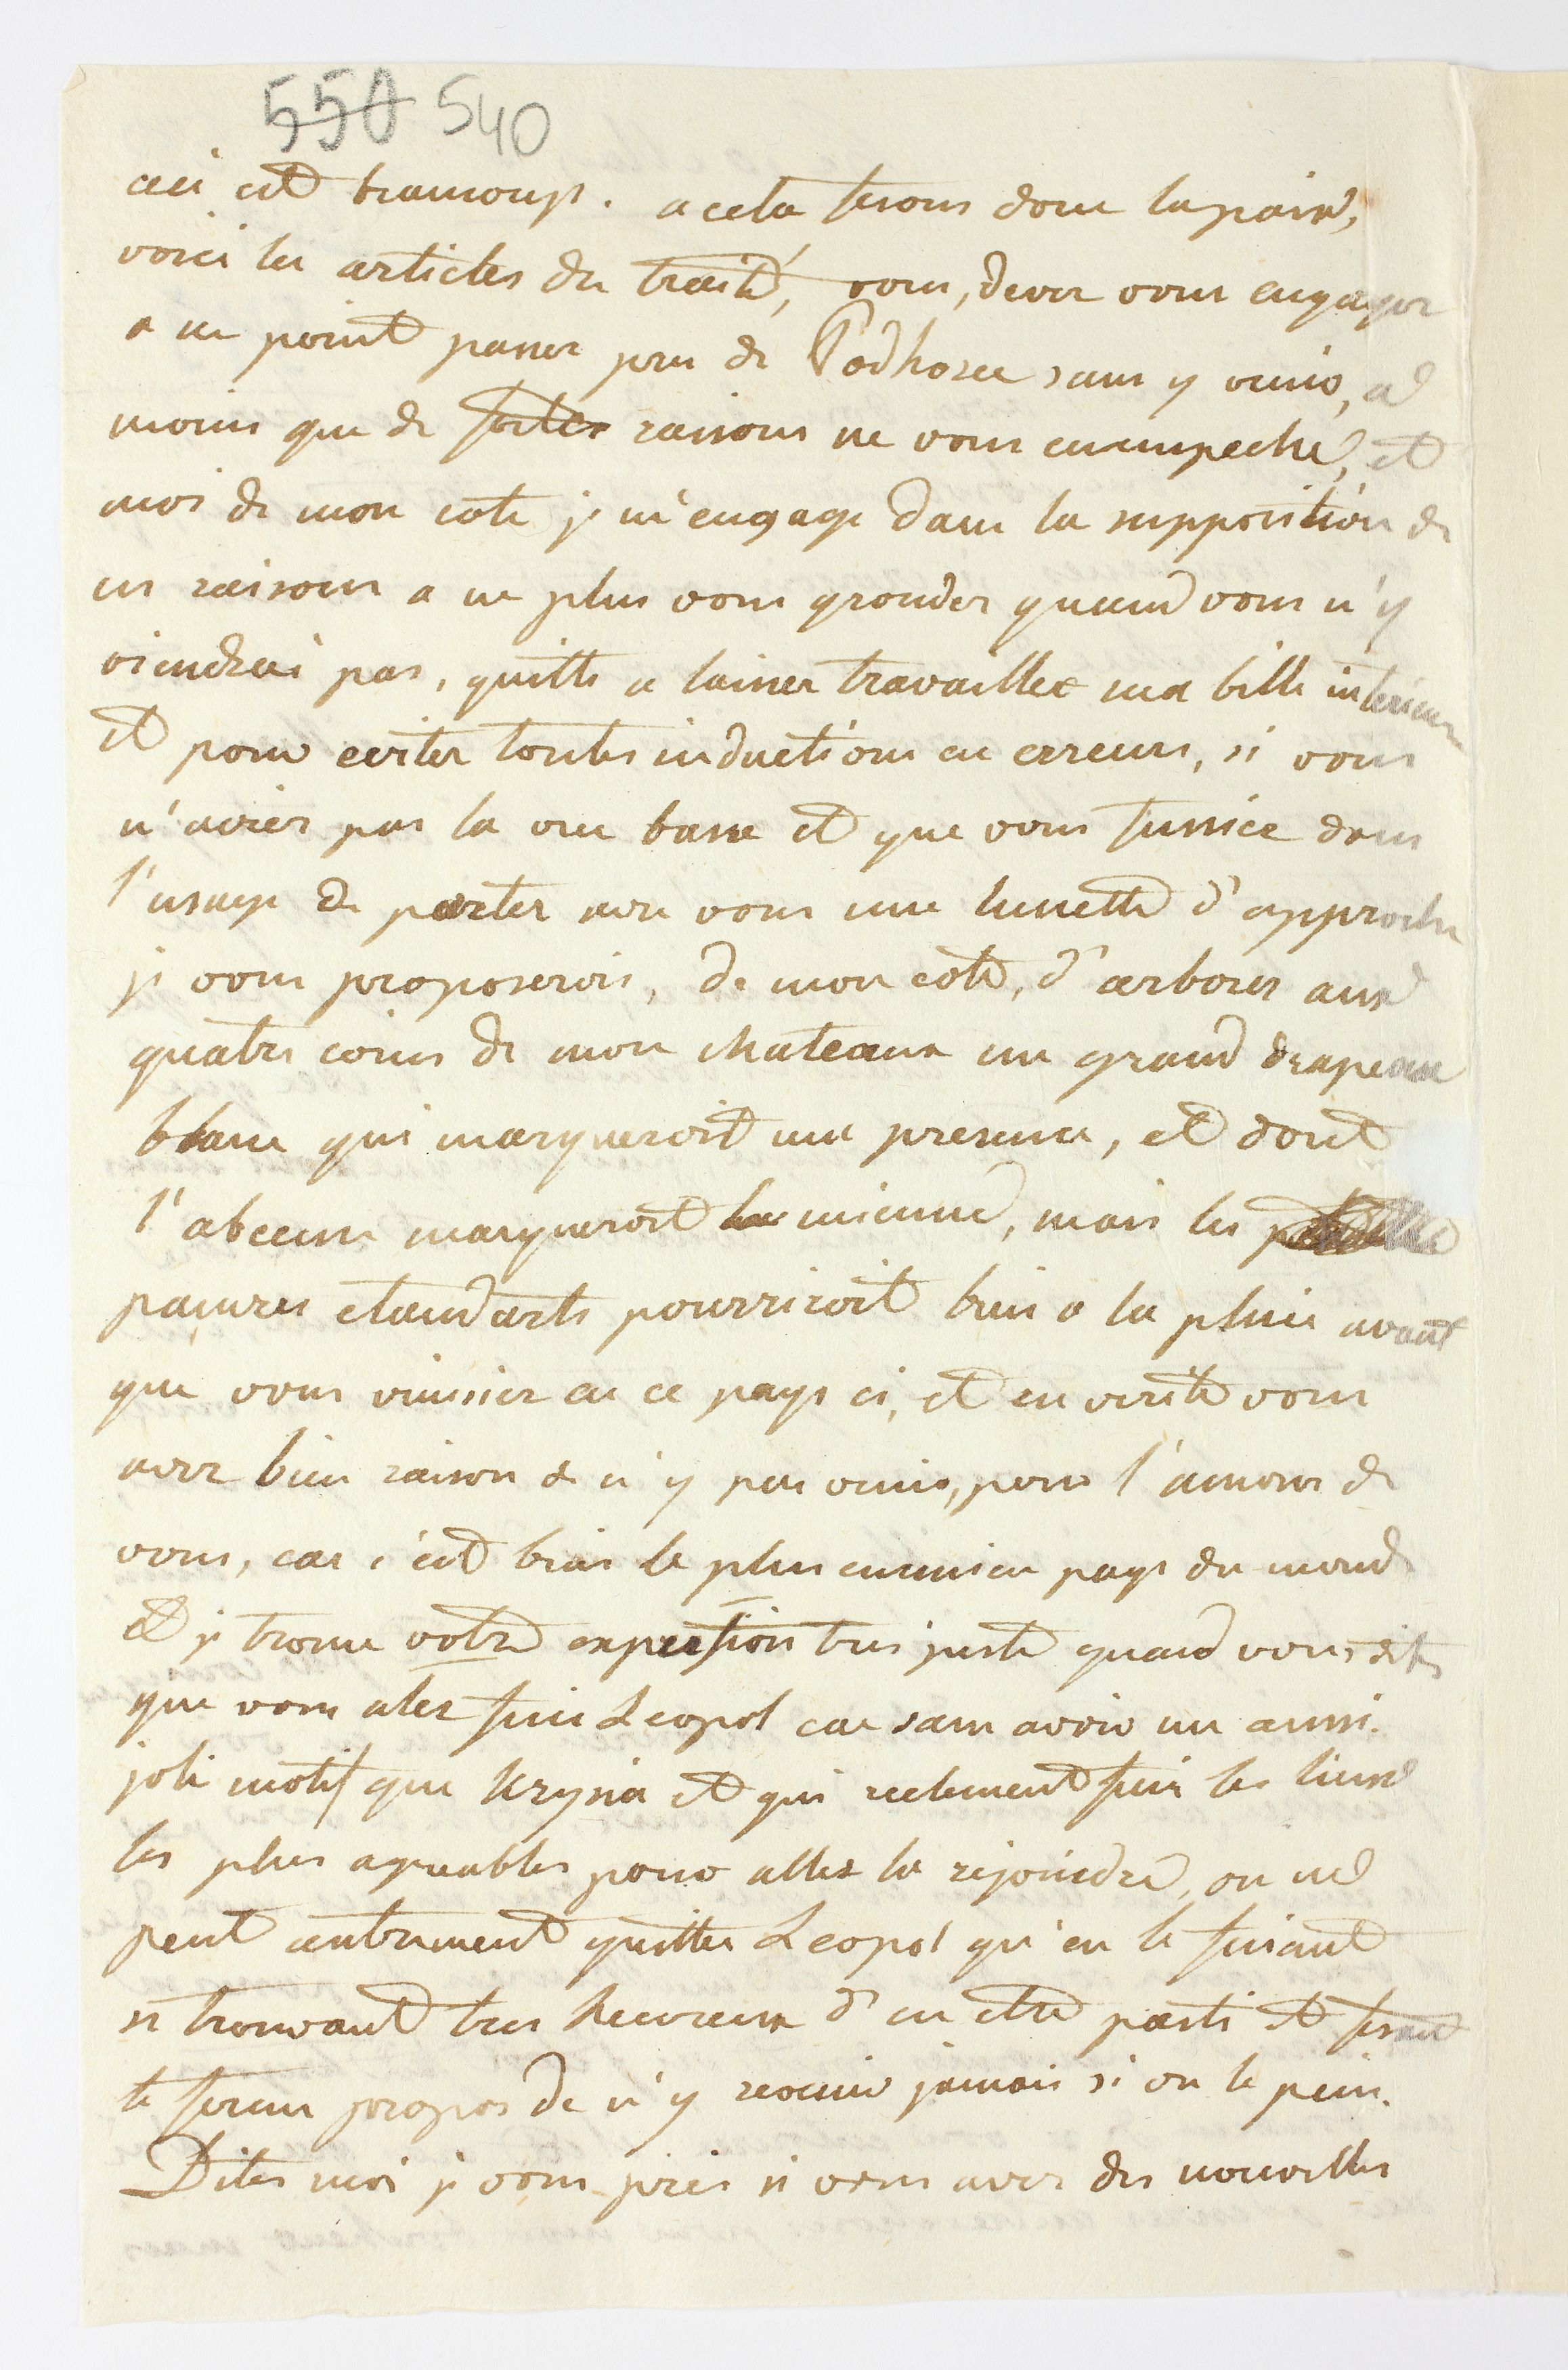 550 540
ceci est beaucoup. a cela fesons donc la paix,
voici les articles du traité, vous, devez vous engager
a ne point passer pres de Podhorce sans y venir, a
moins que de fortes raisons ne vous enempeche, et
moi de mon coté je m'engage dans la supposition de
ces raisons a ne plus vous gronder quand vous n'y
viendrai pas, quitte a laisser travailler ma bille interieur
et pour eviter toutes inductions en erreurs, si vous
n'aviez pas la vue basse et que vous fussiez dans
l'usage de porter avec vous une lunette d'approche
je vous proposerois, de mon coté, d'arborer aux
quatres coins de mon chateaux un grand drapeau
blanc qui marqueroit ma presence, et dont
l'abcence marqueroit la mienne, mais les
pauvres etandarts pourriroit bien a la pluie avant
que vous vinssiez en ce pays ci, et en verité vous
avez bien raison de n'y pas venir, pour l'amour de
vous, car c'est bien le plus ennuieu pays du monde
et je trouve votre expression tres juste quand vous dites
que vous alez fuir Leopol car sans avoir un aussi
joli motif que Krysia et qui reelement fuir les lieux
les plus agreables pour aller la rejoindre, on ne
peut autrement quitter Leopol qu'en le fuiant
se trouvant tres heureux d'en etre parti et fesant
le ferme propos de n'y revenir jamais si on le peu.
Dites moi je vous pries si vous avez des nouvelles